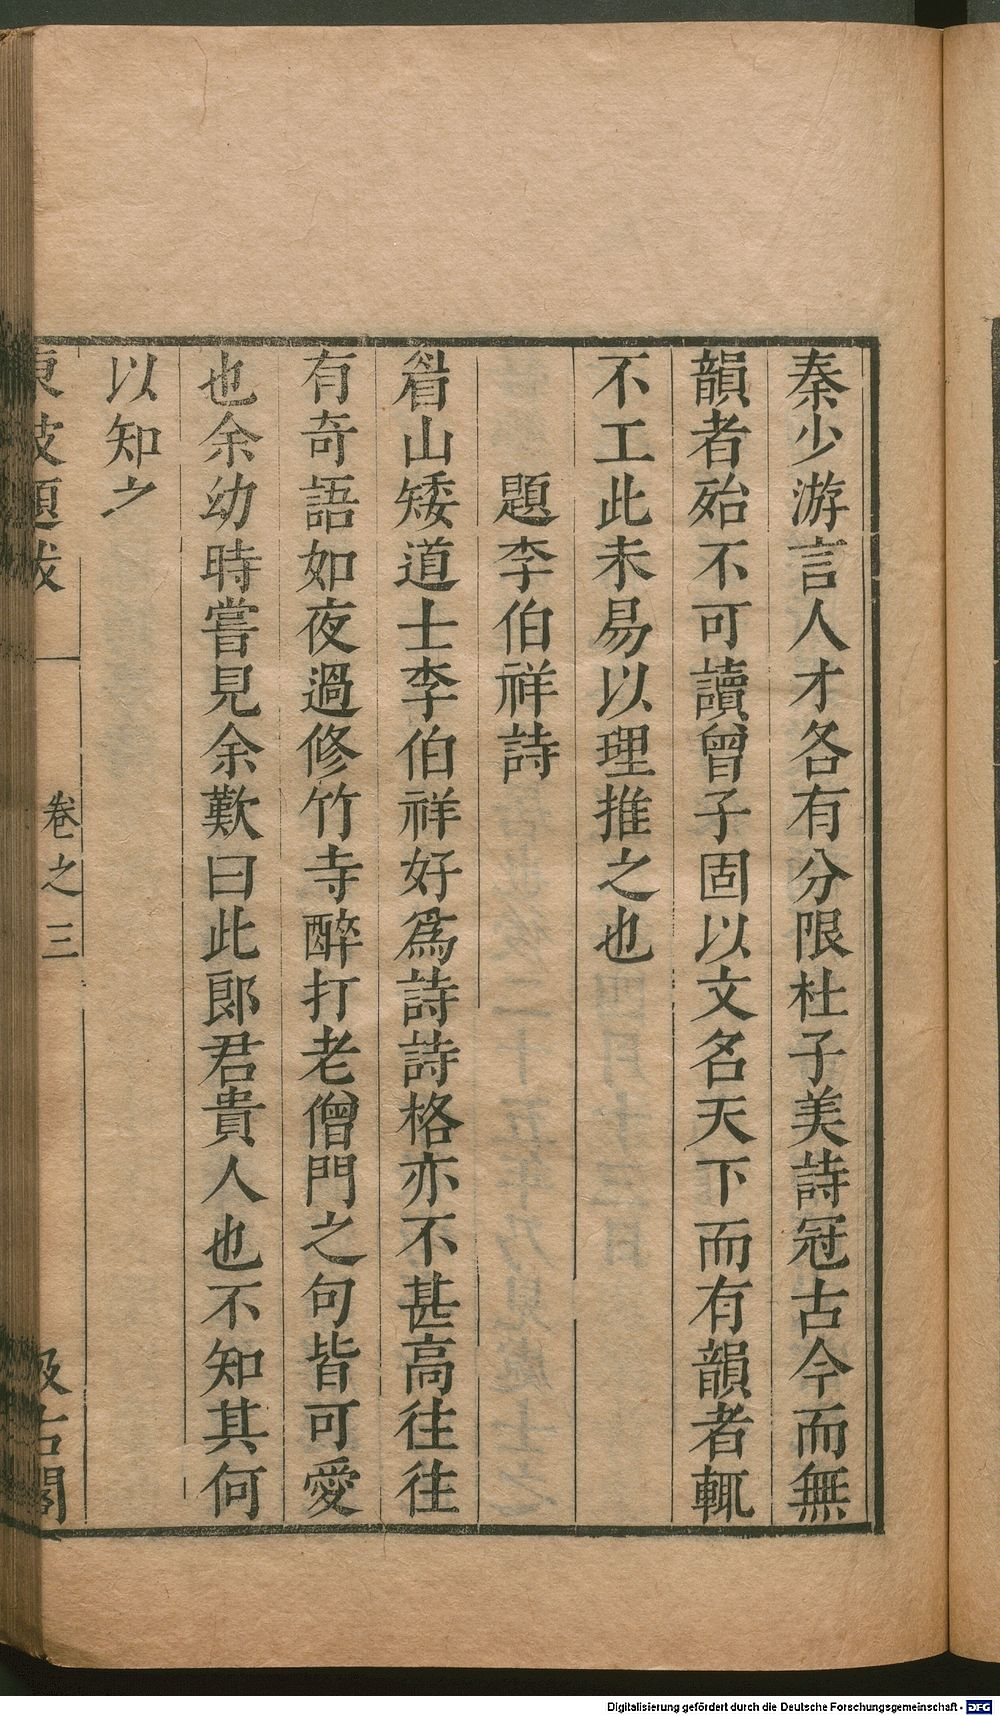 秦少游言人才各有分限杜子美詩冠古今而無
韻者殆不可讀曾子固以文名天下而有韻者輒
不工此未易以理推之也
題李伯祥詩
眉山矮道士李伯祥好爲詩詩格亦不甚高往往
有奇語如夜過修竹寺醉打老僧門之句皆可愛
也余幼時嘗見余歎曰此郎君貴人也不知其何
以知之
東坡題跋
卷之三
汲古閣
Digitalisierung gefördert durch die Deutsche Forschungsgemeinschaft - DFG